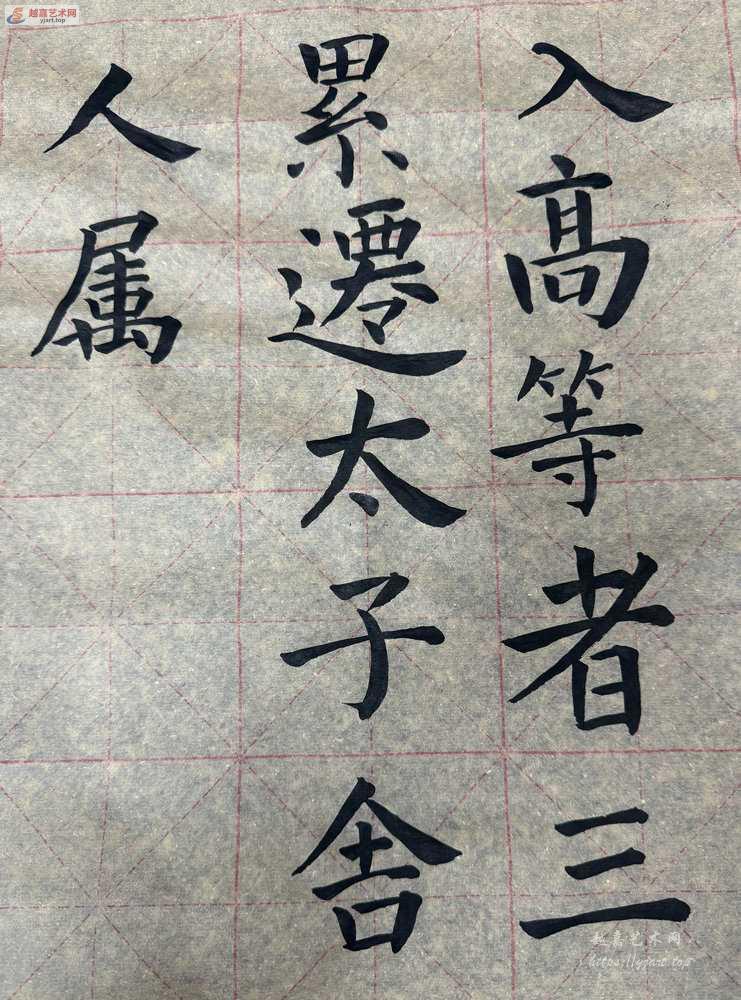 入高等者三
累遷太子舎
人属
越嘉艺术网
yjart.top
越嘉艺术网
https://yjart.top